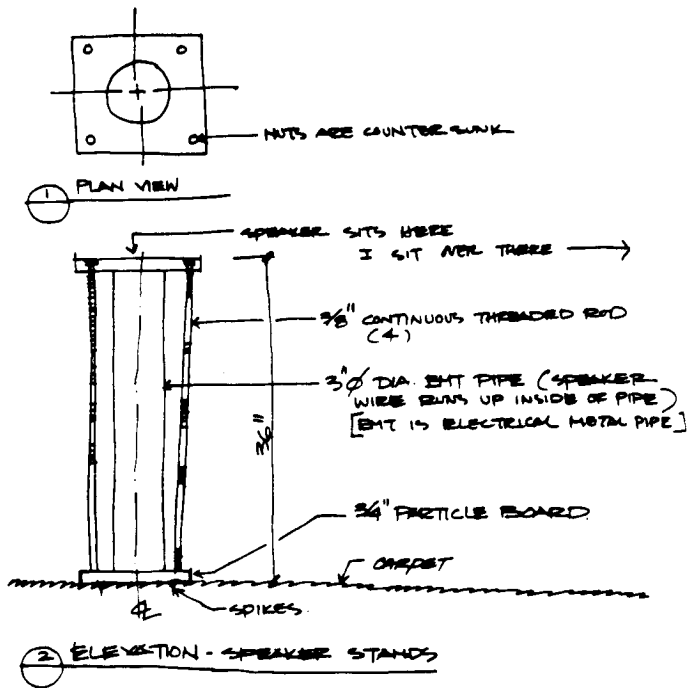 NUTS ARE COUNTER SUNK
1 PLAN VIEW
SPEAKER SITS HERE
I SIT OVER THERE
3/8" CONTINUOUS THREADED ROD
(4)
3"Ø DIA. EMT PIPE (SPEAKER
WIRE RUNS UP INSIDE OF PIPE)
[EMT IS ELECTRICAL METAL PIPE]
36"
3/4" PARTICLE BOARD
CARPET
℄
SPIKES
2 ELEVATION - SPEAKER STANDS